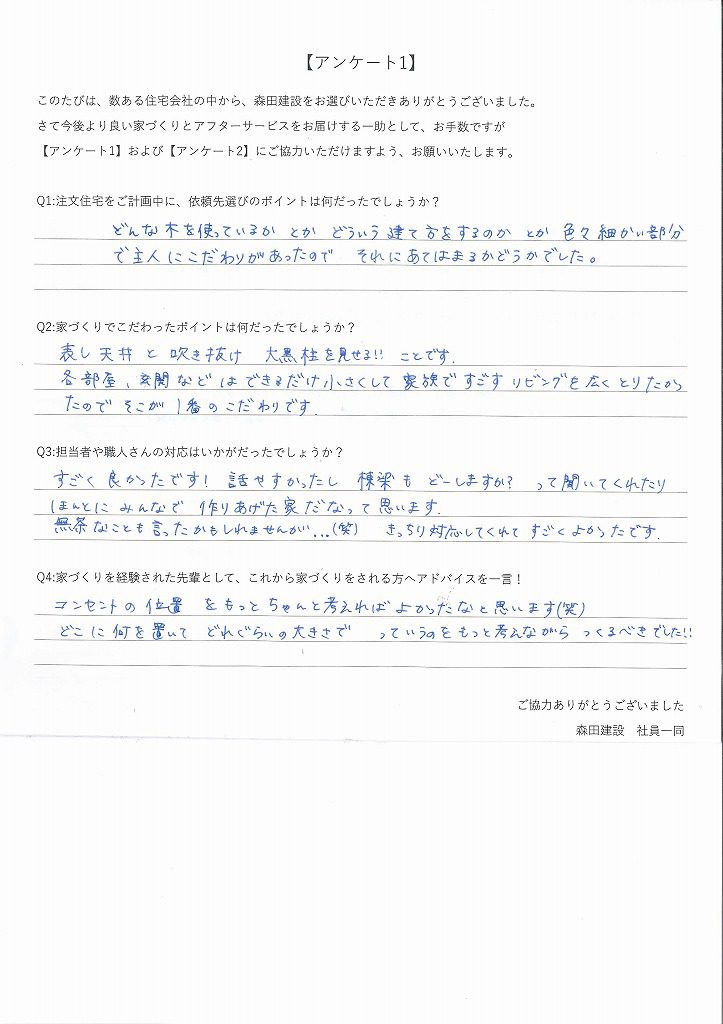 【アンケート1】
このたびは、数ある住宅会社の中から、森田建設をお選びいただきありがとうございました。
さて今後より良い家づくりとアフターサービスをお届けする一助として、お手数ですが
【アンケート1】および【アンケート2】にご協力いただけますよう、お願いいたします。
Q1:注文住宅をご計画中に、依頼先選びのポイントは何だったでしょうか？
どんな木を使っているか とか どういう建て方をするのか とか 色々細かい部分
で主人にこだわりがあったので それにあてはまるかどうかでした。
Q2:家づくりでこだわったポイントは何だったでしょうか？
表し天井と吹き抜け 大黒柱を見せる!! ことです.
各部屋、玄関などはできるだけ小さくして家族ですごすリビングを広くとりたかっ
たのでそこが1番のこだわりです.
Q3:担当者や職人さんの対応はいかがだったでしょうか？
すごく良かったです! 話せすかったし 棟梁も どーしますか? って聞いてくれたり
ほんとにみんなで作りあげた家だなって思います.
無茶なことも言ったかもしれませんが...(笑) きっちり対応してくれてすごくよかったです.
Q4:家づくりを経験された先輩として、これから家づくりをされる方へアドバイスを一言！
コンセントの位置をもっとちゃんと考えればよかったなと思います(笑)
どこに何を置いて どれぐらいの大きさで っていうのをもっと考えながらつくるべきでした!!
ご協力ありがとうございました
森田建設 社員一同